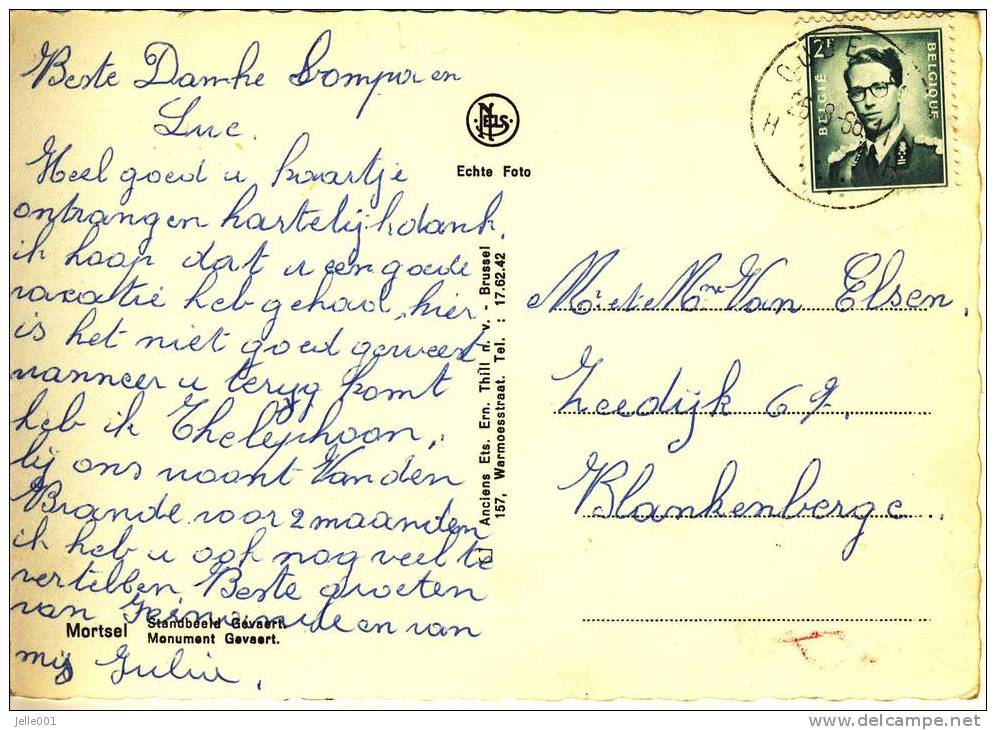 Beste Damke Lompa en
Luc.
Heel goed u kaartje
ontvangen hartelijk dank,
ik hoop dat u een goede
vacatie heb gehad, hier
is het niet goed geweest
wanneer u terug komt
heb ik Thelephoon,
bij ons woont Vanden
Brande voor 2 maanden
ik heb u ook nog veel te
vertellen Beste groeten
van en van
mij Julia.
Mortsel Standbeeld Gevaert.
Monument Gevaert.
NELS
Echte Foto
Anciens Ets. Ern. Thill n. v. - Brussel
157, Warmoesstraat. Tel. : 17.62.42
2F
BELGIË
BELGIQUE
OUDE
Mr et Mme Van Elsen,
Zeedijk 69,
Blankenberge.
jelle001
delcampe.net